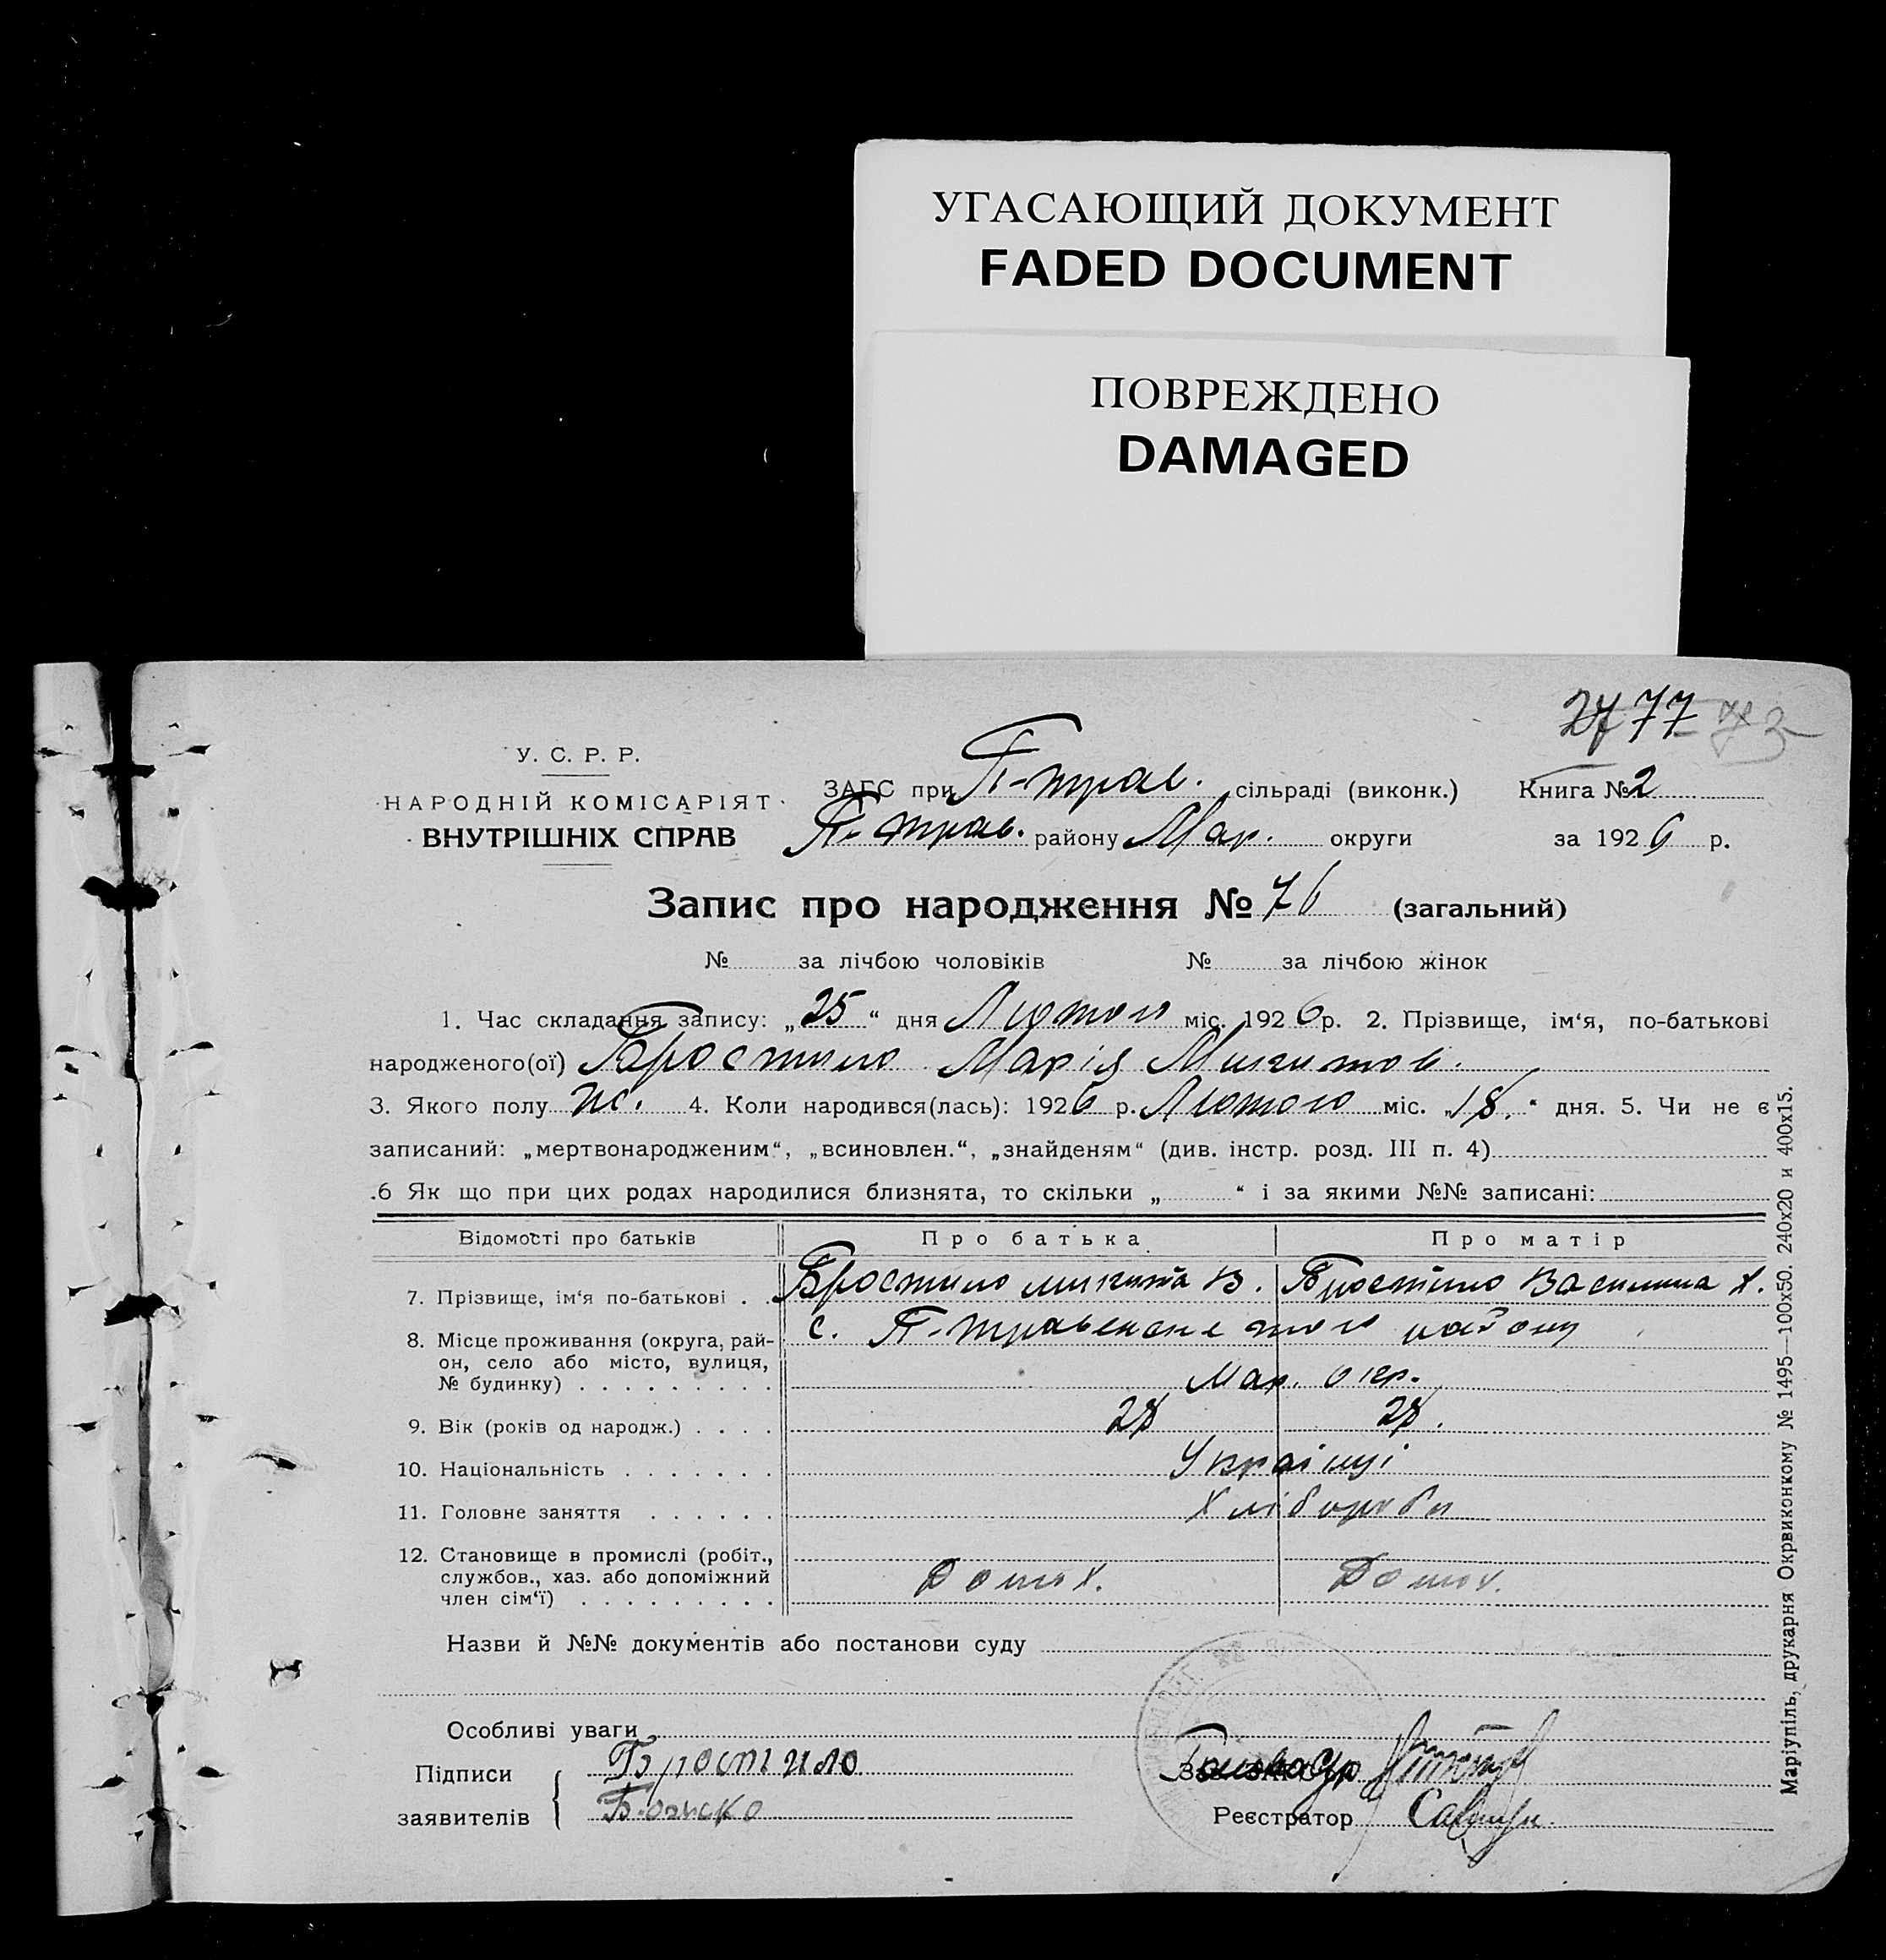 УГАСАЮЩИЙ ДОКУМЕНТ
FADED DOCUMENT
ПОВРЕЖДЕНО
DAMAGED
77
У. С. Р. Р.
НАРОДНІЙ КОМІСАРІЯТ
ВНУТРІШНІХ СПРАВ
ЗАГС при П-трав. сільраді (виконк.) Книга № 2
П-трав. району Мар. округи за 1926 р.
Запис про народження № 76 (загальний)
№ за лічбою чоловіків № за лічбою жінок
1. Час складання запису: „25“ дня Лютого міс. 1926 р. 2. Прізвище, ім‘я, по-батькові
народженого(ої) Бростило Марія Микитов.
3. Якого полу ж. 4. Коли народився(лась): 1926 р. Лютого міс. „18.“ дня. 5. Чи не є
записаний: „мертвонародженим“, „всиновлен.“, „знайденям“ (див. інстр. розд. III п. 4)
.6 Як що при цих родах народилися близнята, то скільки „ “ і за якими №№ записані:
Відомості про батьків Про батька Про матір
7. Прізвище, ім‘я по-батькові . . Бростило Микита В. Бростило Василина Х.
8. Місце проживання (округа, рай-
он, село або місто, вулиця,
№ будинку) . . . . . . . . .
с. П-травенське того району
Мар. окр.
9. Вік (років од народж.) . . . . 28 28.
10. Національність . . . . . . . Українці
11. Головне заняття . . . . . . Хлібороби
12. Становище в промислі (робіт.,
службов., хаз. або допоміжний
член сім‘ї) . . . . . . . . .
Домох. Домох.
Назви й №№ документів або постанови суду
Особливі уваги
Підписи
заявителів
Бростило
Реєстратор
Маріупіль, друкарня Окрвиконкому № 1495—100х50. 240х20 и 400х15.